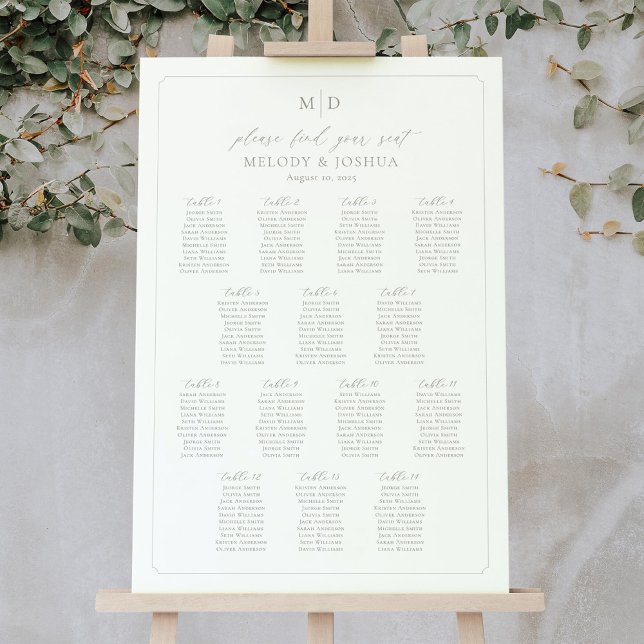 M|D
please find your seat
MELODY & JOSHUA
August 10, 2025
table 1
Jeorge Smith
Olivia Smith
Jack Anderson
Sarah Anderson
David Williams
Michelle Smith
Liana Williams
Seth Williams
Kristen Anderson
Oliver Anderson
table 2
Kristen Anderson
Oliver Anderson
Jeorge Smith
Olivia Smith
Jack Anderson
Sarah Anderson
Liana Williams
Seth Williams
Michelle Smith
David Williams
table 3
Jeorge Smith
Olivia Smith
Seth Williams
Kristen Anderson
Oliver Anderson
David Williams
Michelle Smith
Jack Anderson
Sarah Anderson
Liana Williams
table 4
Kristen Anderson
Oliver Anderson
David Williams
Michelle Smith
Jack Anderson
Sarah Anderson
Jeorge Smith
Olivia Smith
Liana Williams
Seth Williams
table 5
Kristen Anderson
Oliver Anderson
Michelle Smith
Jeorge Smith
Olivia Smith
Jack Anderson
Sarah Anderson
Liana Williams
Seth Williams
David Williams
table 6
Jeorge Smith
Olivia Smith
Jack Anderson
Sarah Anderson
David Williams
Michelle Smith
Liana Williams
Seth Williams
Kristen Anderson
Oliver Anderson
table 7
David Williams
Michelle Smith
Jack Anderson
Sarah Anderson
Liana Williams
Seth Williams
Jeorge Smith
Olivia Smith
Kristen Anderson
Oliver Anderson
table 8
Sarah Anderson
David Williams
Michelle Smith
Liana Williams
Seth Williams
Kristen Anderson
Oliver Anderson
Jeorge Smith
Olivia Smith
Jack Anderson
table 9
Jack Anderson
Sarah Anderson
Liana Williams
Seth Williams
David Williams
Michelle Smith
Kristen Anderson
Oliver Anderson
Jeorge Smith
Olivia Smith
table 10
Seth Williams
Kristen Anderson
Oliver Anderson
David Williams
Michelle Smith
Jack Anderson
Sarah Anderson
Liana Williams
Jeorge Smith
Olivia Smith
table 11
David Williams
Michelle Smith
Jack Anderson
Sarah Anderson
Jeorge Smith
Olivia Smith
Liana Williams
Seth Williams
Kristen Anderson
Oliver Anderson
table 12
Jeorge Smith
Olivia Smith
Jack Anderson
Sarah Anderson
David Williams
Michelle Smith
Liana Williams
Seth Williams
Kristen Anderson
Oliver Anderson
table 13
Kristen Anderson
Oliver Anderson
Michelle Smith
Jeorge Smith
Olivia Smith
Jack Anderson
Sarah Anderson
Liana Williams
Seth Williams
David Williams
table 14
Jeorge Smith
Olivia Smith
Seth Williams
Kristen Anderson
Oliver Anderson
David Williams
Michelle Smith
Jack Anderson
Sarah Anderson
Liana Williams